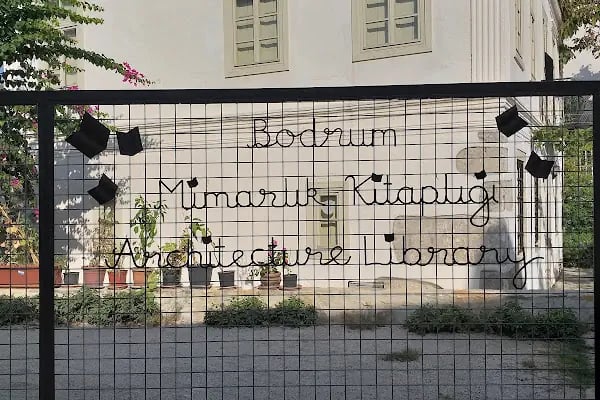 Bodrum
Mimarlık Kitaplığı
Architecture Library